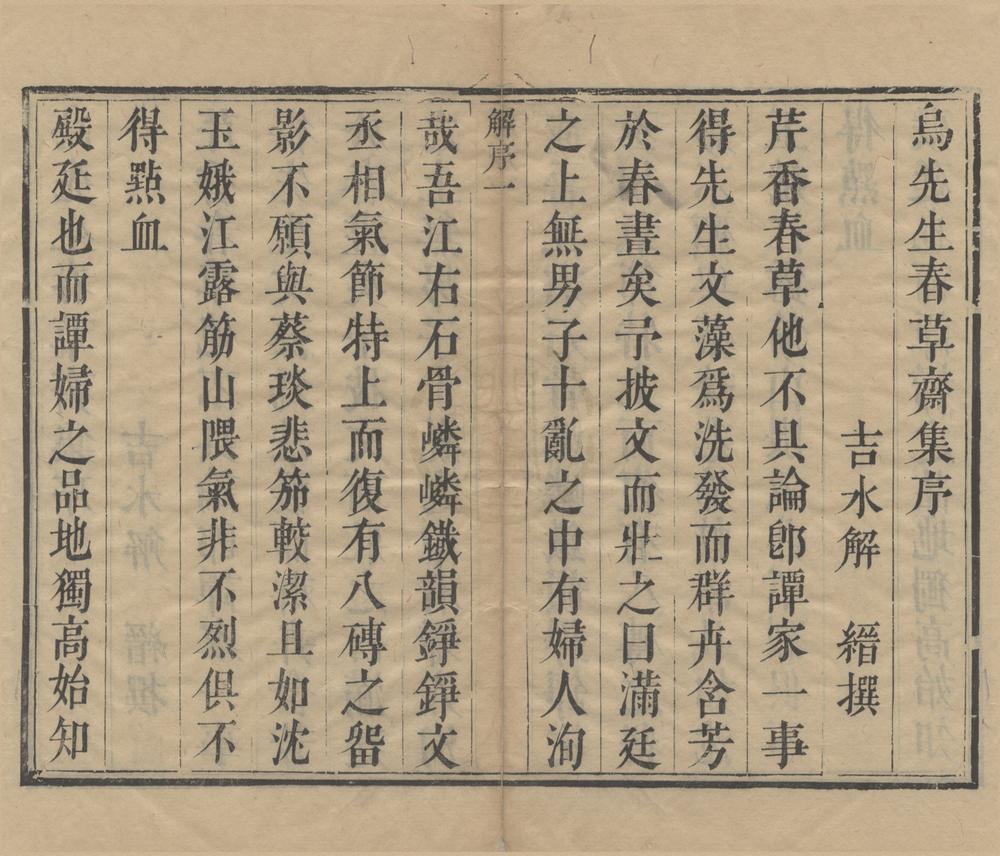 烏先生春草齋集序
吉水解　縉撰
芹香春草他不具論卽譚家一事
得先生文藻爲洗發而群卉含芳
於春晝矣予披文而壯之曰滿廷
之上無男子十亂之中有婦人洵
解序一
哉吾江右石骨嶙嶙鐵韻錚錚文
丞相氣節特上而復有八磚之畱
影不願與蔡琰悲笳較潔且如沈
玉娥江露筋山隈氣非不烈俱不
得點血
殿廷也而譚婦之品地獨高始知